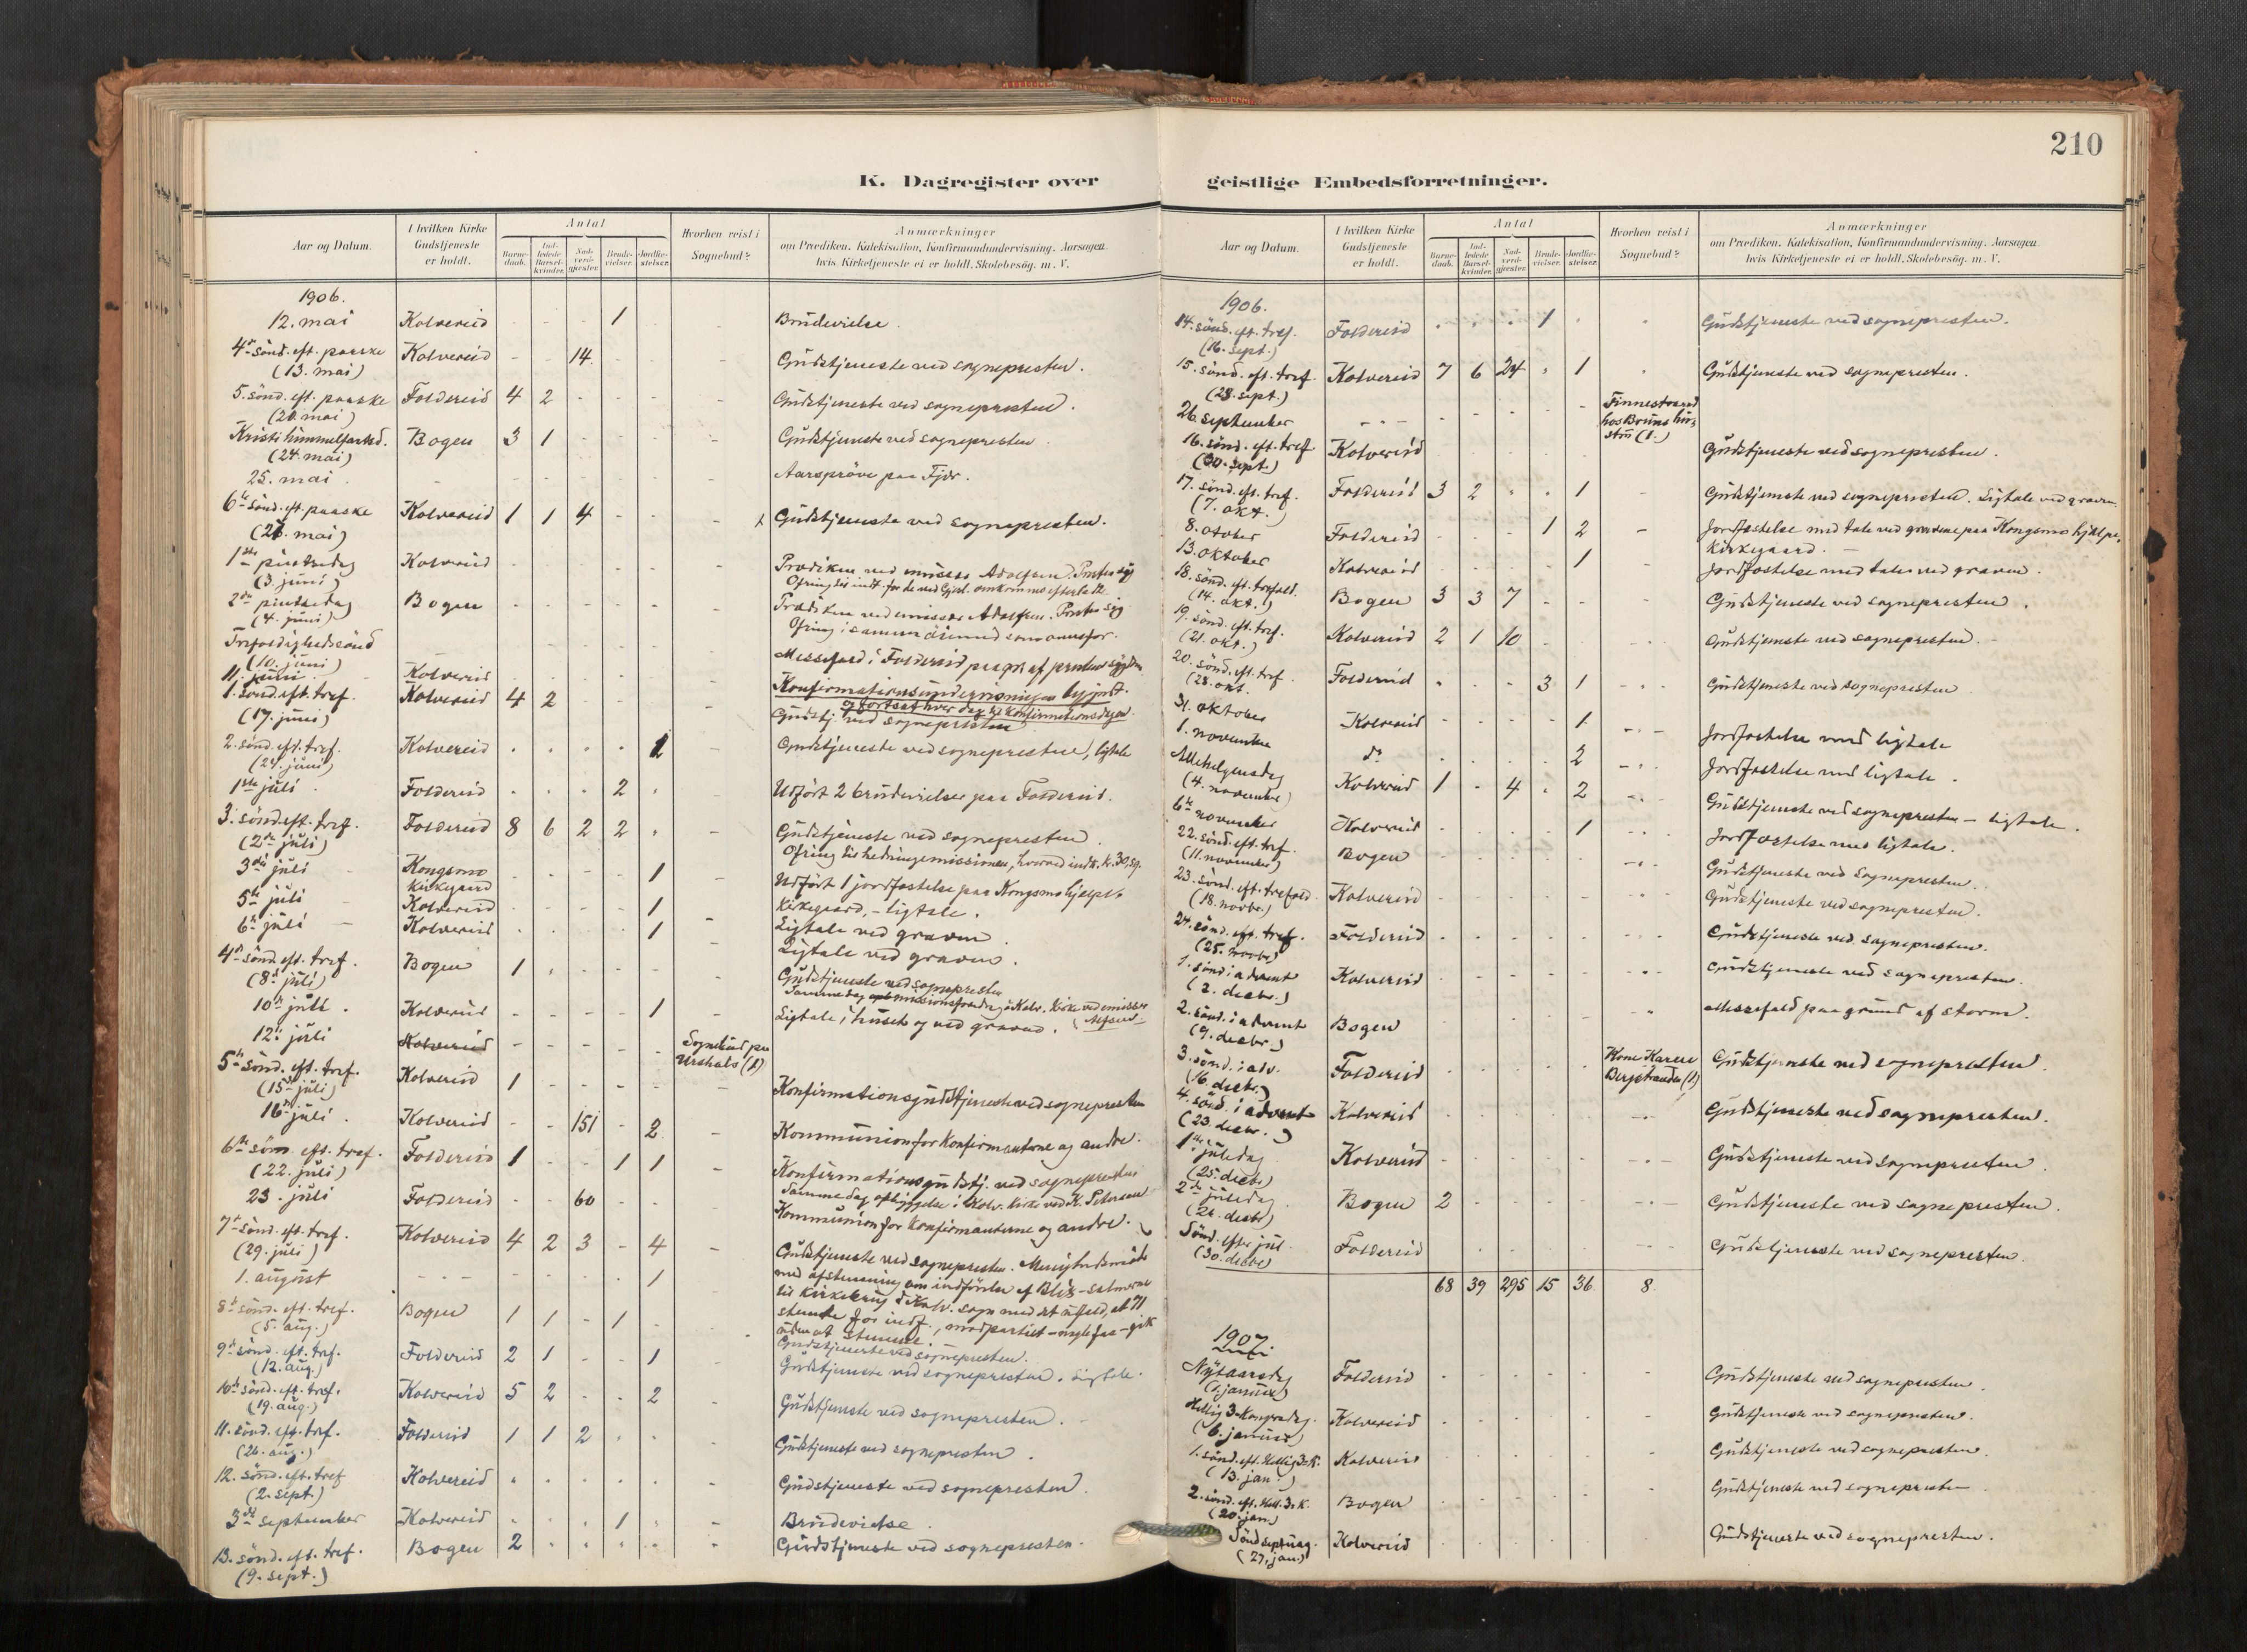 210
K. Dagregister over
Aar og Datum.
I hvilken Kirke Gudstjeneste er holdt.
Antal
Barnedaab.
Indledede Barselkvinder.
Nadverdgjester.
Brudevielser.
Jordfæstelser.
Hvorhen reist i Sognebud?
Anmærkninger
om Prædiken, Katekisation, Konfirmandundervisning. Aarsagen,
hvis Kirketjeneste ei er holdt, Skolebesög. m. V.
1906.
12. mai Kolvereid - - - 1 - - Brudevielse.
4de sönd. eft. paaske Kolvereid - - 14 - - - Gudstjeneste ved sognepresten.
(13. mai)
5. sönd. eft. paaske Foldereid 4 2 - - - - Gudstjeneste ved sognepresten.
(20. mai)
Kristi himmelfartsd. Bogen 3 1 - - - - Gudstjeneste ved sognepresten.
(24. mai)
25. mai - - - - - - Aarspröve paa Fjær.
6te sönd. eft. paaske Kolvereid 1 1 4 - - - Gudstjeneste ved sognepresten.
1ste pintsedag Kolvereid - - - - - - Prædiken ved emissær Adolfsen. Presten syg
(3. juni)
Ofring ble indt. for de ved Gjesl. omkomnes efterladte
2den pintsedag Bogen - - - - - - Prædiken ved emissær Adolfsen. Presten syg
(4. juni)
Ofring i samme öiemed som ovenfor.
Trefoldighedssönd
(10. juni) - - - - - - Messefald i Foldereid paa gr. af prestens sygdom
11. juni. Kolvereid - - - - - - Konfirmationsundervisningen begynt.
og fortsat hver dag til konfirmationsdagen.
1. sönd. eft. tref. Kolvereid 4 2 - - - - Gudstj. ved sognepresten
(17. juni)
2. sönd. eft. tref. Kolvereid - - - - 1 - Gudstjeneste ved sognepresten, ligtale
(24. juni)
1ste juli Foldereid - - - 2 - - Udfört 2 brudevielser paa Foldereid.
3. sönd. eft. tref. Foldereid 8 6 2 2 - - Gudstjeneste ved sognepresten.
(2den juli)
Ofring til hedningemissionen, hvorved indk. kr. 30,59.
3die juli Kongsmo kirkegaard - - - - 1 - Udfört 1 jordfæstelse paa Kongsmo hjælpe-
kirkegaard, - ligtale.
5te juli Kolvereid - - - - 1 - Ligtale ved graven.
6te juli Kolvereid - - - - 1 - Ligtale ved graven.
4de sönd. eft. tref. Bogen 1 - - - - - Gudstjeneste ved sognepresten
(8de juli)
Samme dag missionsforedrag i Kolv. kirke ved emissær
10de juli. Kolvereid - - - - 1 - Ligtale i huset og ved graven.
12te juli Kolvereid - - - - - Sognebud paa Urshals (1)
5te sönd. eft. tref. Kolvereid 1 - - - - - Konfirmationsgudstjeneste ved sognepresten
(15de juli)
16de juli. Kolvereid - - 151 - 2 - Kommunion for konfirmanterne og andre.
6te sönn. eft. tref. Foldereid 1 - - 1 1 - Konfirmationsgudstj. ved sognepresten
(22. juli)
Samme dag opbyggelse i Kolv. kirke ved K. Petersen
23. juli Foldereid - - 60 - - - Kommunion for konfirmanterne og andre.
7de sönd. eft. tref. Kolvereid 4 2 3 - 4 - Gudstjeneste ved sognepresten. Menighedsmöde
(29. juli)
med afstemning om indförelse af Blix-salmerne
til kirkebrug i Kolv. sogn med det udfald, at 71
stemte for indf., modpartiet - nogle faa - gik
uden at stemme.
1. august - - - - - 1
8de sönd. eft. tref. Bogen 1 1 - 1 - - Gudstjeneste ved sognepresten.
(5. aug.)
9de sönd. eft. tref. Foldereid 2 1 - - 1 - Gudstjeneste ved sognepresten. Ligtale.
(12. aug.)
10de sönd. eft. tref. Kolvereid 5 2 - - 2 - Gudstjeneste ved sognepresten.
(19. aug.)
11. sönd. eft. tref. Foldereid 1 1 2 - - - Gudstjeneste ved sognepresten.
(26. aug.)
12. sönd. eft. tref Kolvereid - - - - - - Gudstjeneste ved sognepresten.
(2. sept.)
3de september Kolvereid - - - 1 - - Brudevielse.
13. sönd. eft. tref. Bogen 2 - - - - - Gudstjeneste ved sognepresten.
(9. sept.)
geistlige Embedsforretninger.
Aar og Datum.
I hvilken Kirke Gudstjeneste er holdt.
Antal
Barnedaab.
Indledede Barselkvinder.
Nadverdgjester.
Brudevielser.
Jordfæstelser.
Hvorhen reist i Sognebud?
Anmærkninger
om Prædiken, Katekisation, Konfirmandundervisning. Aarsagen,
hvis Kirketjeneste ei er holdt, Skolebesög. m. V.
1906.
14. sönd. eft. tref. Foldereid - - - 1 - - Gudstjeneste ved sognepresten.
(16. sept.)
15. sönd. eft. tref. Kolvereid 7 6 24 - 1 - Gudstjeneste ved sognepresten.
(23. sept.)
26. september - - - - - - Finnestrand hos Bruns (1.)
16. sönd. eft. tref Kolvereid - - - - - - Gudstjeneste ved sognepresten.
(30. sept.)
17. sönd. eft. tref. Foldereid 3 2 - - 1 - Gudstjeneste ved sognepresten. Ligtale ved graven.
(7. okt.)
8. otober Foldereid - - - 1 2 - Jordfæstelse med tale ved gravene paa Kongsmo hjælpe-
kirkegaard. -
13. oktober Kolvereid - - - - 1 Jordfæstelse med tale ved graven.
18. sönd. eft. trefold. Bogen 3 3 7 - - - Gudstjeneste ved sognepresten.
(14. okt.)
19. sönd. eft. tref. Kolvereid 2 1 10 - - - Gudstjeneste ved sognepresten.
(21. okt.)
20. sönd. eft. tref. Foldereid - - - 3 1 - Gudstjeneste ved sognepresten
(28. okt.
31. oktober Kolvereid - - - - 1 - Jordfæstelse med ligtale
1. november do - - - - 2 - Jordfæstelse med ligtale.
Allehelgensdag Kolvereid 1 - 4 - 2 - Gudstjeneste ved sognepresten - ligtale.
(4. november)
6te november Kolvereid - - - - 1 - Jordfæstelse med ligtale.
22. sönd. eft. tref. Bogen - - - - - - Gudstjeneste ved Sognepresten.
(11. november)
23. sönd. eft. trefold. Kolvereid - - - - - - Gudstjeneste ved sognepresten.
(18. novbr.)
24. sönd. eft. tref. Foldereid - - - - - - Gudstjeneste ved sognepresten.
(25. novbr)
1. sönd. i advent Kolvereid - - - - - - Gudstjeneste ved sognepresten.
(2. decbr.)
2. sönd. i advent Bogen - - - - - - Messefald paa grund af storm.
(9. decbr.)
3. sönd. i adv. Foldereid - - - - - Kone Karen (1) Gudstjeneste ved sognepresten.
(16. decbr.)
4. sönd. i advent Kolvereid - - - - - - Gudstjeneste ved sognepresten.
(23. decbr.)
1ste juledag Kolvereid - - - - - - Gudstjeneste ved sognepresten.
(25. decbr)
2den juledag Bogen 2 - - - - - Gudstjeneste ved sognepresten.
(26. decbr)
Sönd. efter jul Foldereid - - - - - - Gudstjeneste ved sognepresten.
(30. decbr)
68 39 295 15 36 8
1907
Nytaarsdag Foldereid - - - - - - Gudstjeneste ved sognepresten.
(1. januar)
Hellig 3-Kongersdag. Kolvereid - - - - - - Gudstjeneste ved sognepresten.
(6. januar)
1. sönd. eft. Hellig 3 K. Kolvereid - - - - - - Gudstjeneste ved sognepresten.
(13. jan.)
2. sönd. eft. Hell. 3 K. Bogen - - - - - - Gudstjeneste ved sognepresten
(20. jan.)
Sönd septuag. Kolvereid - - - - - - Gudstjeneste ved sognepresten.
(27. jan.)